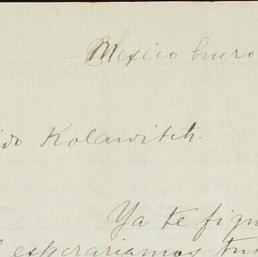 Mexico Enero
ido Kolawitch.
Ya te figu
esperariamos tu